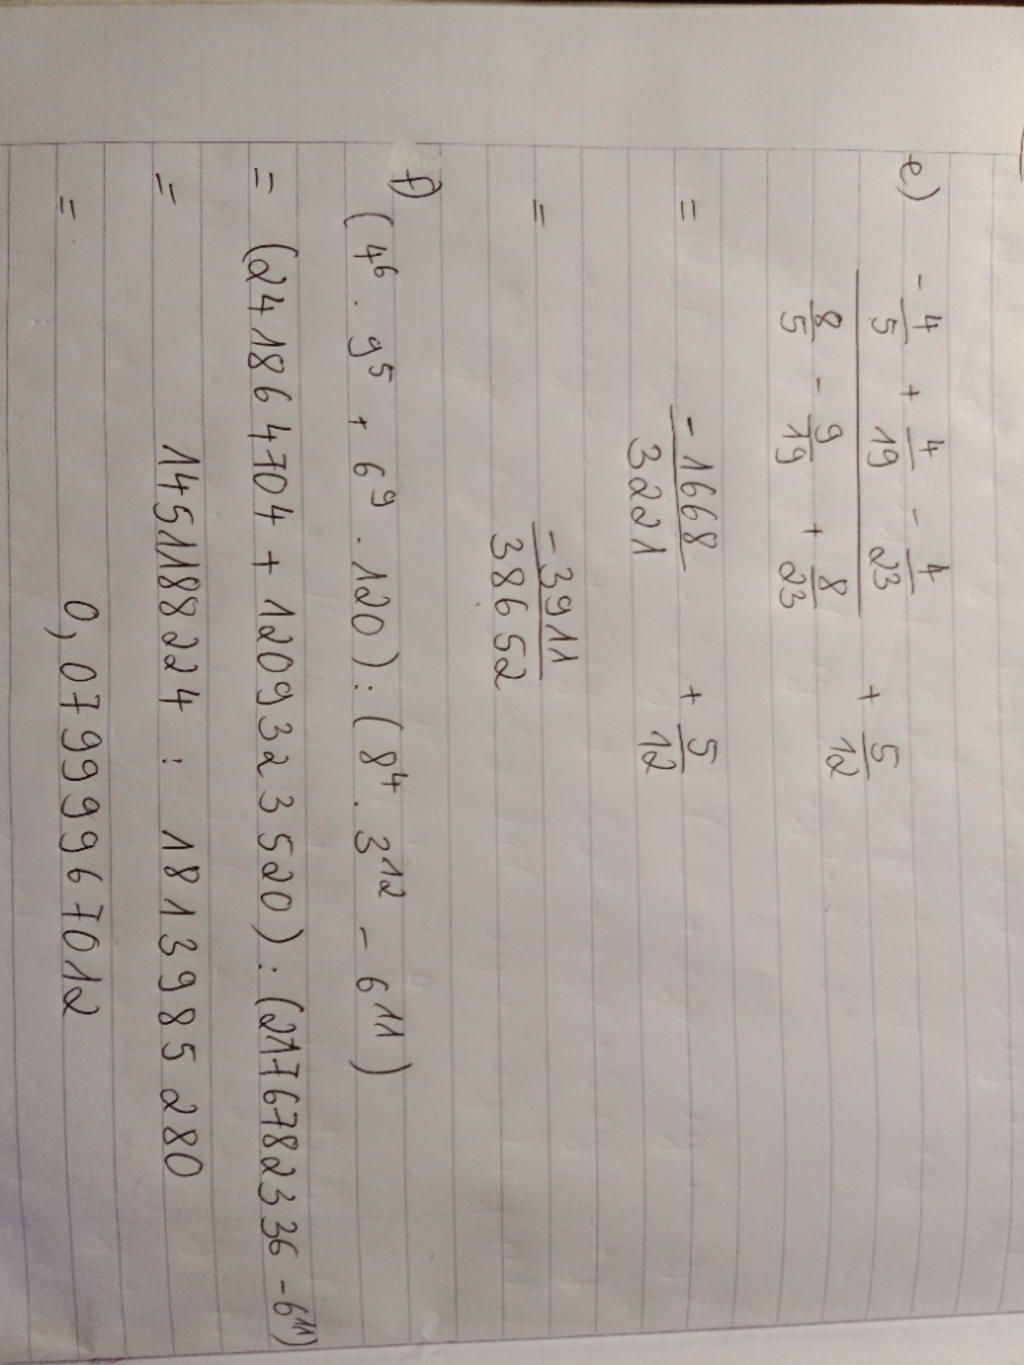 e) -4/5 + 4/19 - 4/23
8/5 - 9/19 + 8/23 + 5/12
= -1668/3221 + 5/12
= -3911/38652
f) (4⁶ · 9⁵ + 6⁹ · 120) : (8⁴ · 3¹² - 6¹¹)
= (241864704 + 1209323520) : (2176782336 - 6¹¹)
= 1451188224 : 1813985280
= 0,07999967012